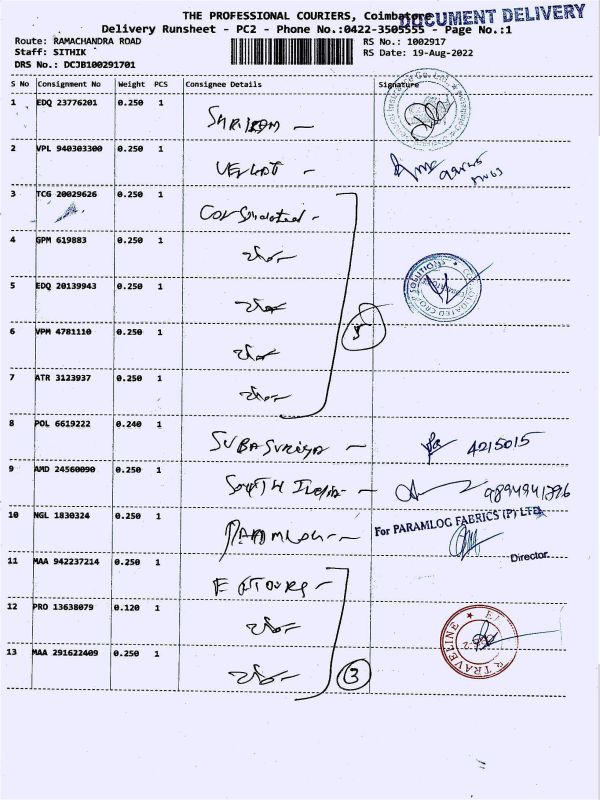 THE PROFESSIONAL COURIERS, Coimbatore
DOCUMENT DELIVERY
Delivery Runsheet - PC2 - Phone No.:0422-3505555 - Page No.:1
Route: RAMACHANDRA ROAD
RS No.: 1002917
Staff: SITHIK
RS Date: 19-Aug-2022
DRS No.: DCJB100291701
S No Consignment No Weight PCS Consignee Details Signature
1 EDQ 23776201 0.250 1
SHRIRAM —
2 VPL 940303300 0.250 1
3 TCG 20029626 0.250 1
Consolidated -
4 GPM 619883 0.250 1
5 EDQ 20139943 0.250 1
CONSOLIDATED CROP SOLUTIONS
6 VPM 4781110 0.250 1
5
7 ATR 3123937 0.250 1
8 POL 6619222 0.240 1
SUBASURIYA — 4215015
9 AMD 24560090 0.250 1
SOUTH INDIA —
10 NGL 1830324 0.250 1
PARAMLOG —
For PARAMLOG FABRICS (P) LTD.,
Director
11 MAA 942237214 0.250 1
12 PRO 13638079 0.120 1
TRAVELINE
13 MAA 291622409 0.250 1
3